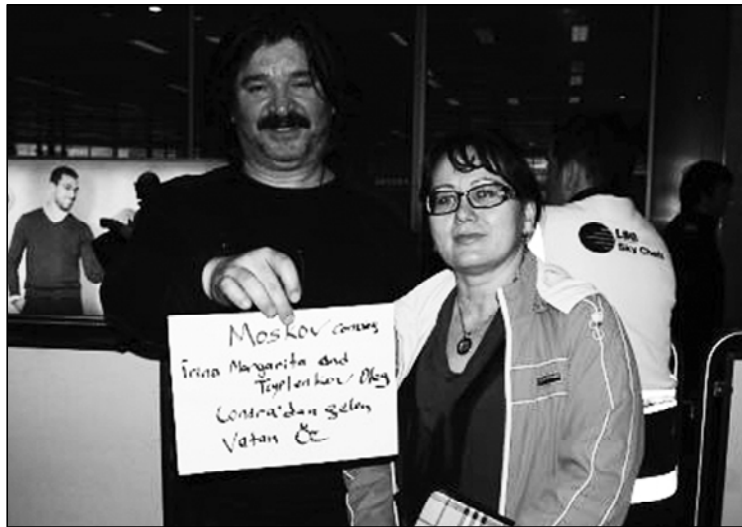 Moskov coming
İrina Margarita and
Tsyplenkov Oleg
Londra'dan gelen
Vatan
LSG
Sky Chefs